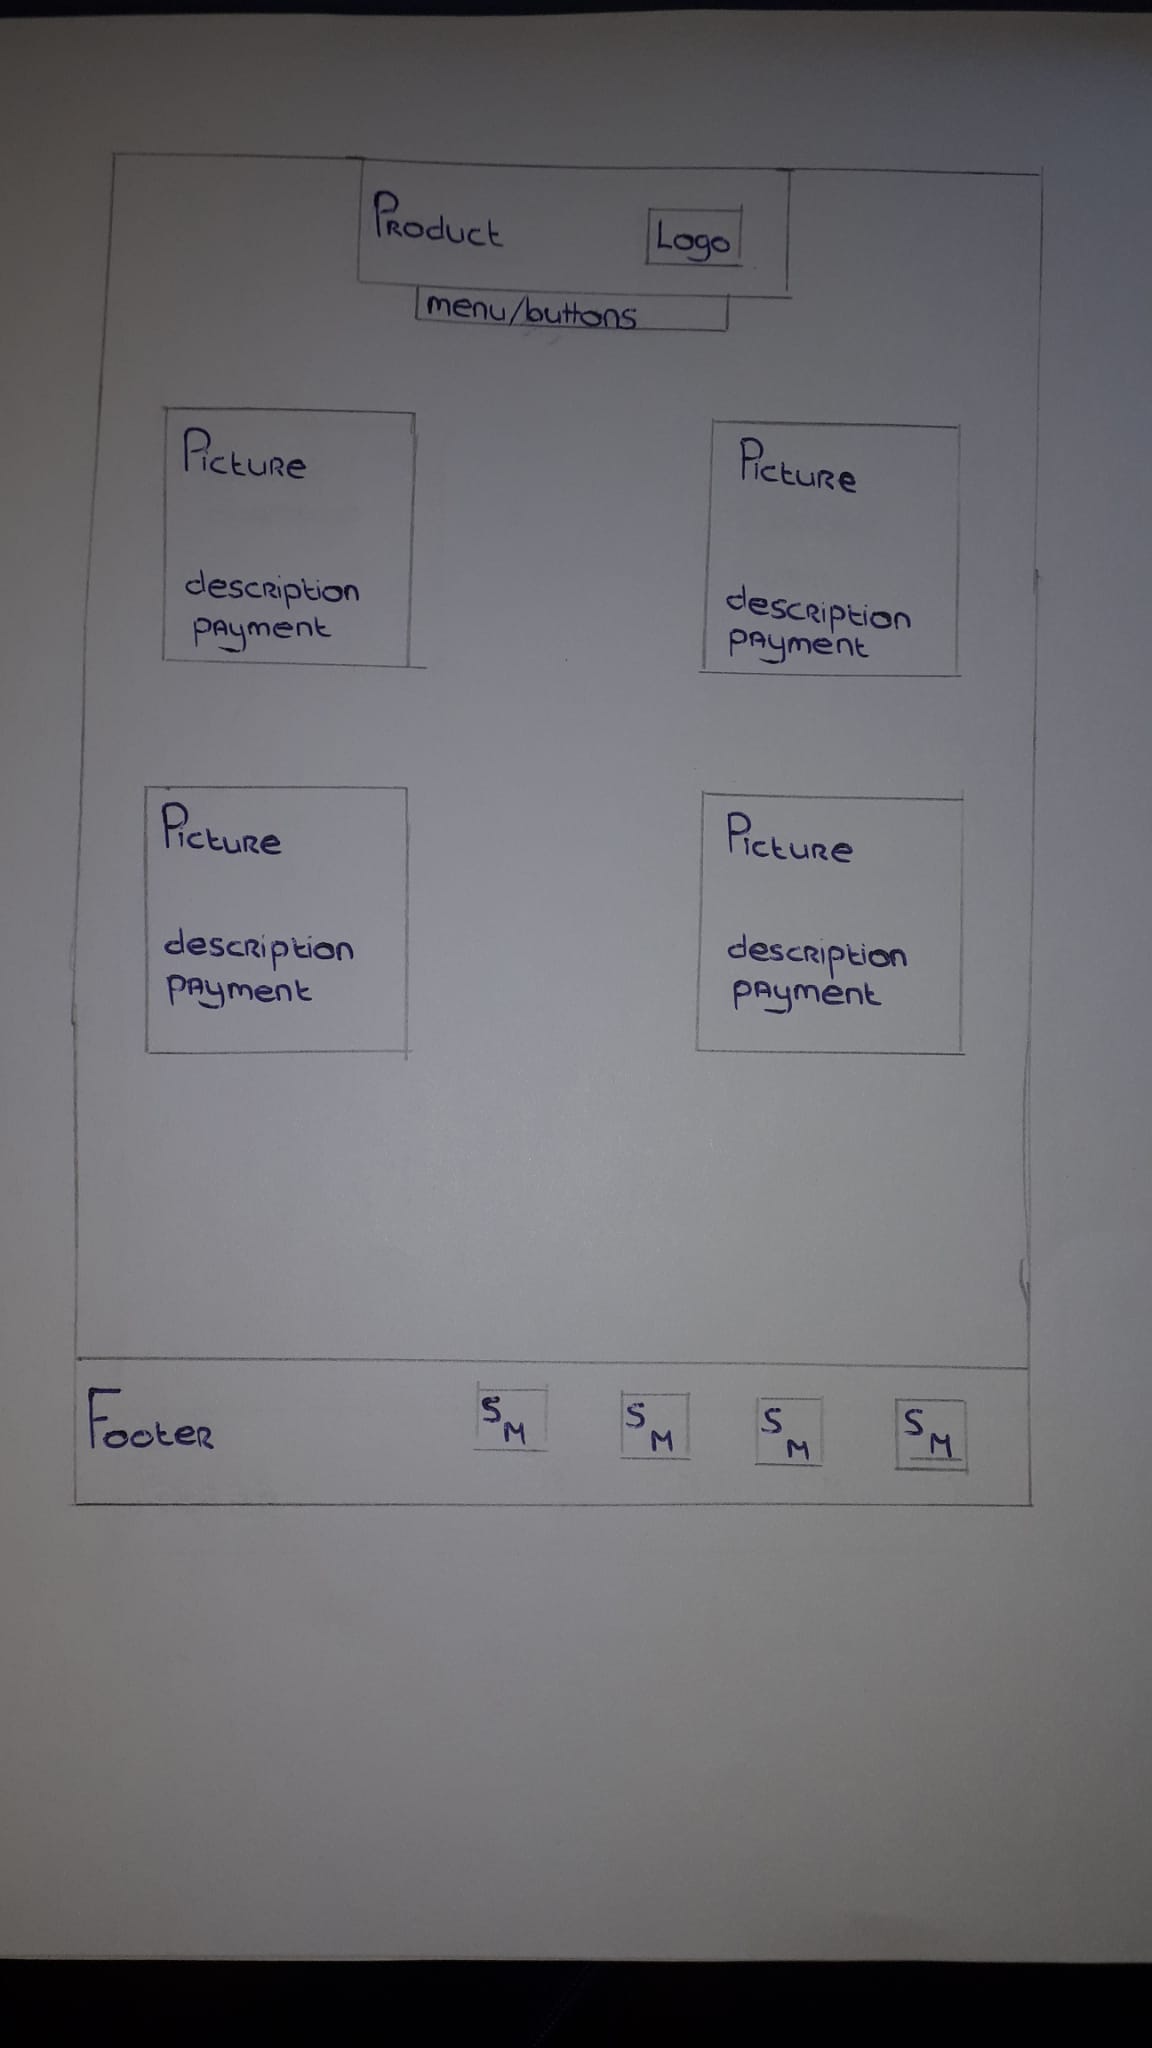 Product
Logo
menu/buttons
Picture
description
payment
Picture
description
payment
Picture
description
payment
Picture
description
payment
Footer
S
M
S
M
S
M
S
M